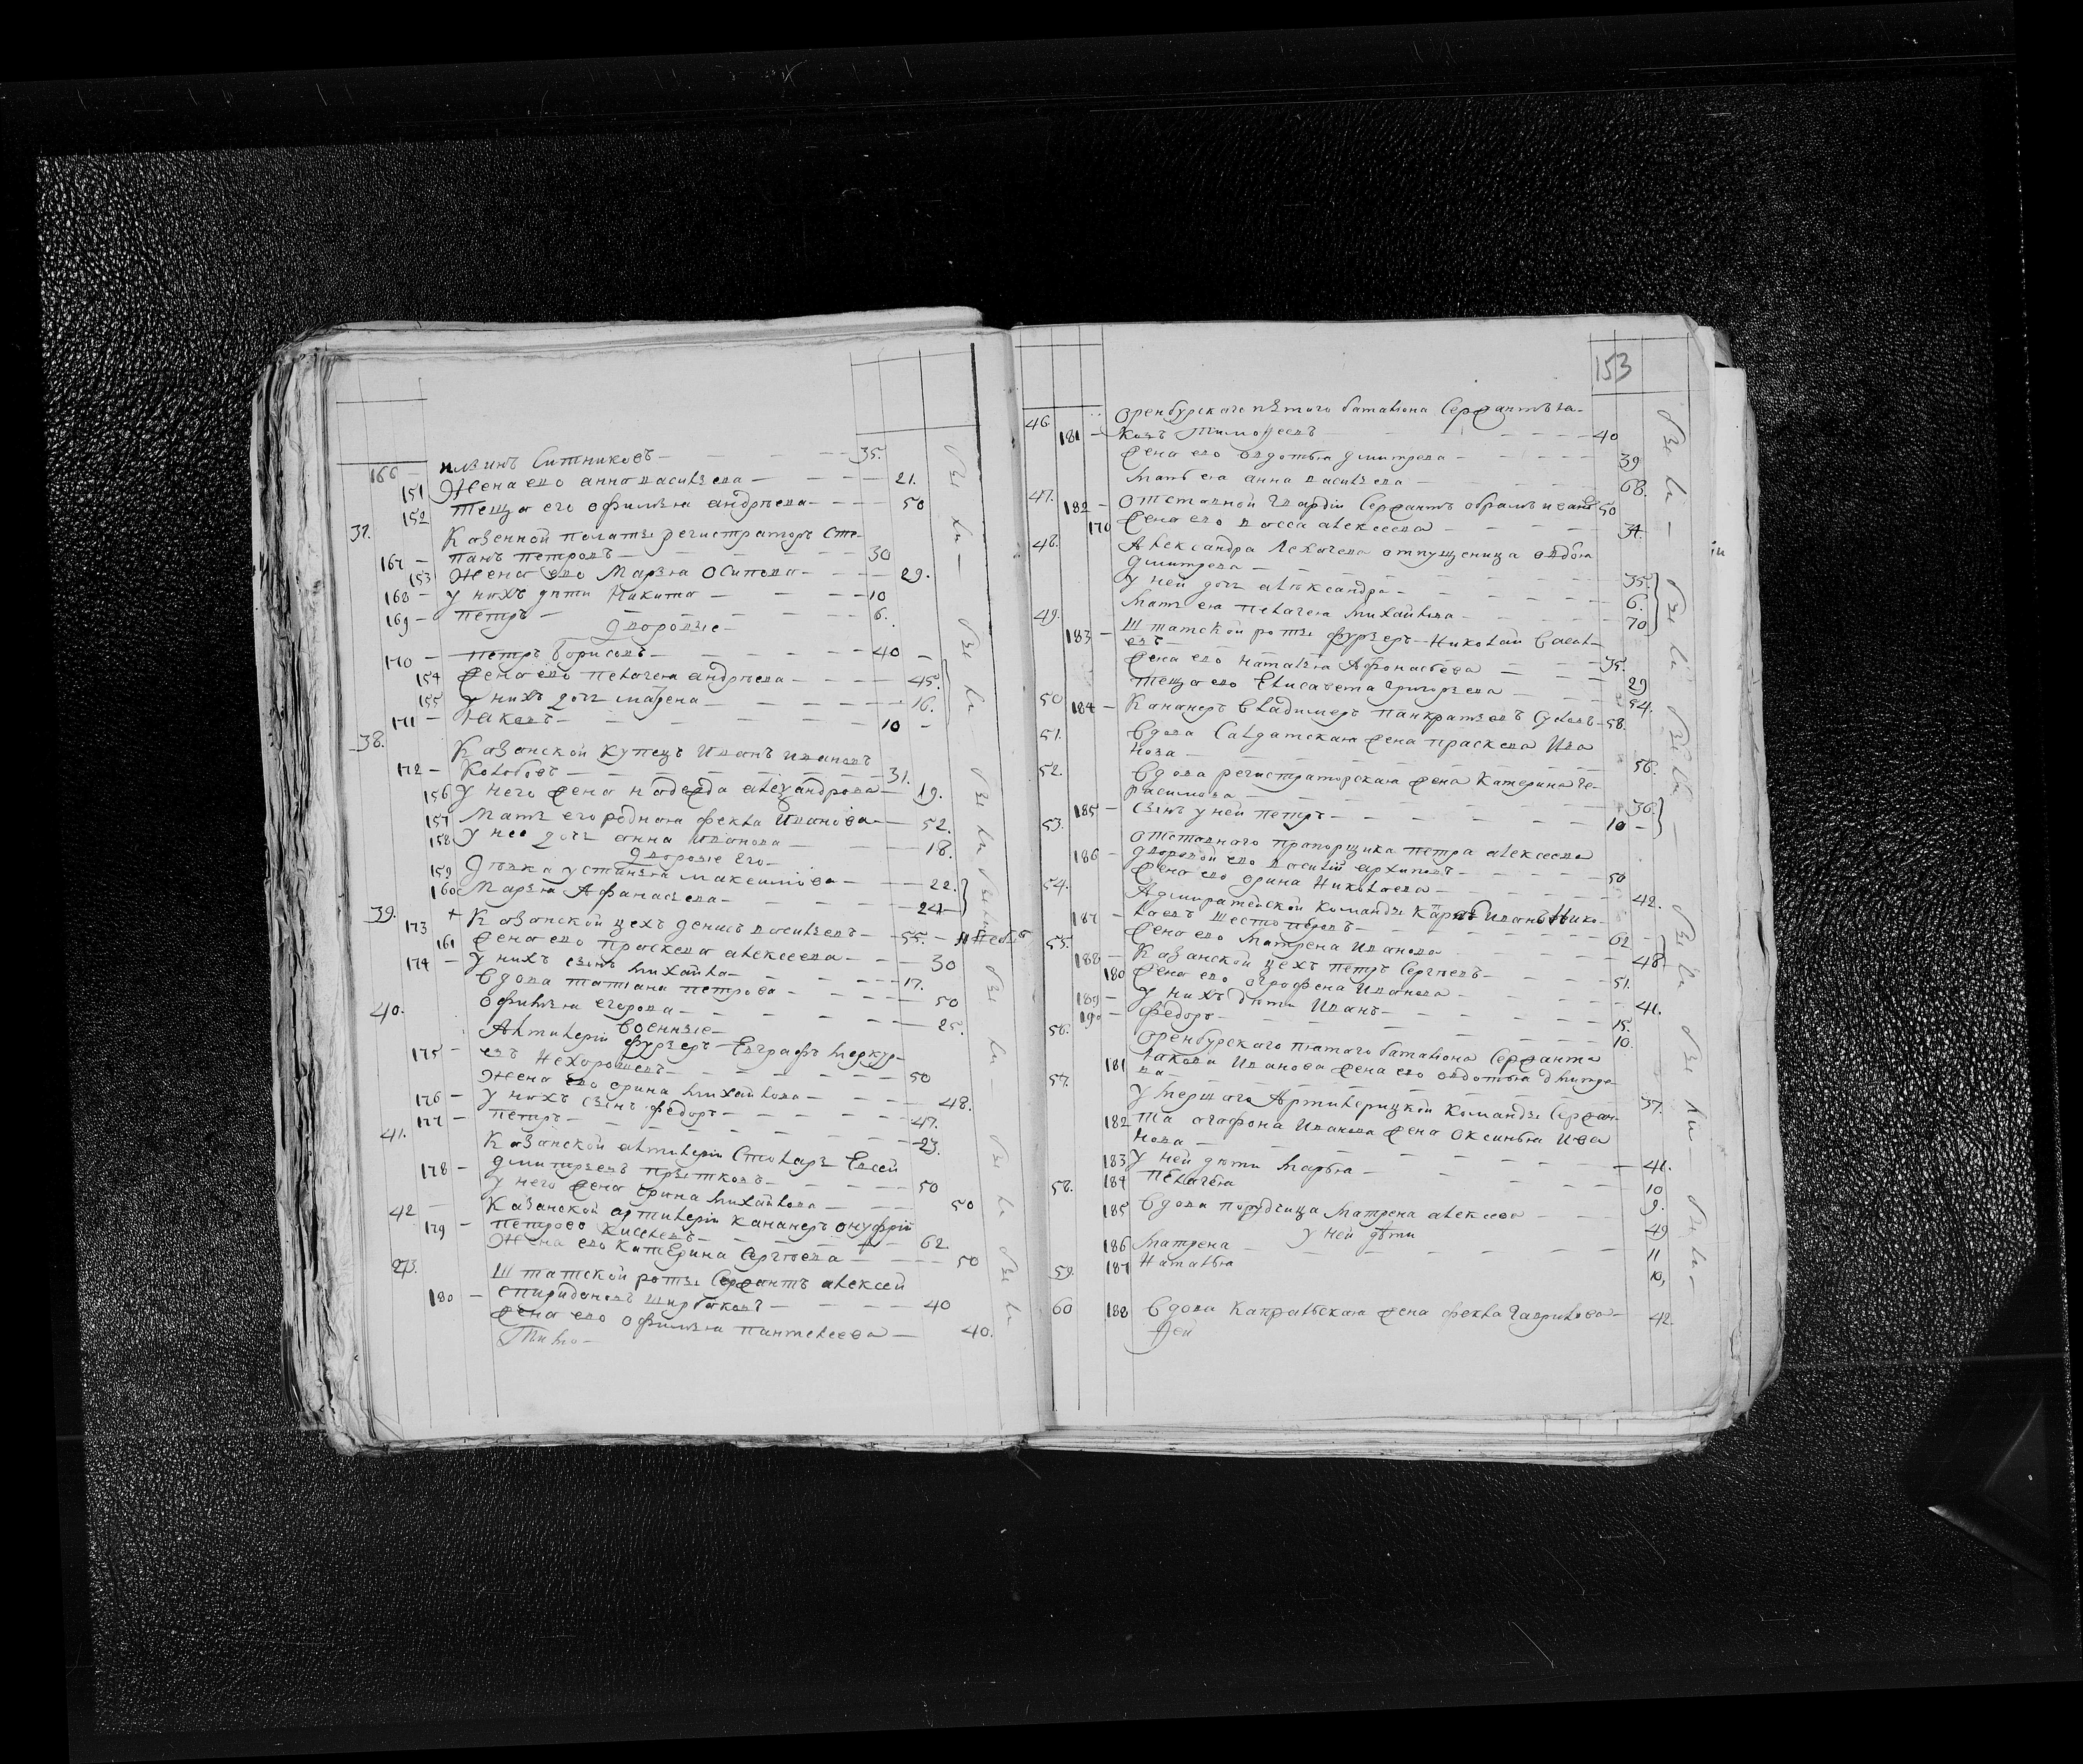 166 — ильинъ Ситниковъ — 35.
151 Жена ево анна васильева — 21.
152 Теща его офимья андреева — 50
37. Казенной палаты регистраторъ Сте-
167 — панъ петровъ — 30
153 Жена ево Марья Осипова — 29.
168 — у нихъ дѣти Никита — 10
169 — петръ — 6.
дворовые —
170 — петръ борисовъ — 40 —
154 жена ево пелагея андреева — 45.
155 у нихъ дочь матрена — 16.
171 — Яковъ — 10 —
38. Казанской купецъ Иванъ Ивановъ
172 — Колобовъ — 31.
156 у него жена надежда александрова — 19.
157 Мать его родная фекла Иванова — 52.
158 у нее дочь анна иванова — 18.
дворовые его —
159 Девка устинья максимова — 22.
160 Марья Афанасьева — 24
39. 173 + Казанской цехъ денисъ васильевъ — 55. —
161 жена ево прасковья алексеева — 30
174 — у нихъ сынъ михайла — 17.
Вдова татиана петрова — 50
40. Офимья егорова — 25.
Военные —
Артилерiи фурьеръ — Евграфъ меркур-
175 — евъ Нехорошевъ — 50
Жена ево орина михайлова — 48.
176 — у нихъ сынъ федоръ — 47.
177 — петръ — 23.
41. Казанской артилерiи Столяръ Евсей
178 — дмитрiевъ прытковъ — 50
у него жена орина михайлова — 50
42 — Казанской артилерiи кананеръ онуфрiй
179 — петровъ Киселевъ — 62.
Жена ево катЕрина Сергеева — 50
Штатской роты Сержантъ алексей
180 — спиридоновъ широковъ — 40
жена ево офимья пантелеева — 40.
153
46. Оренбурскаго пятаго баталiона Сержантъ Іа-
181 — ковъ Тимофеевъ — 40
жена ево Овдотья дмитрева — 39
мать ея анна васильева — 68.
47. 182 — Отставной Гвардiи Сержантъ абрамъ 50
170 жена ево васса алексеева — 34.
48. Александра отпущеница овдотья
дмитрева — 35.
у ней дочь александра — 6.
Мать ея пелагея михайлова — 70
49. 183 — Штатской роты фурьеръ — Николай Савел-
евъ — 35.
жена ево наталья Афонасьева — 29
теща ево Елисавета григорьева — 54.
50 184 — Кананеръ владимеръ панкратьевъ — 58.
51. Вдова Салдатская жена прасковья Ива
нова — 56.
52. Вдова регистраторская жена Катерина Ге-
расимова — 36.
185 — Сынъ у ней петръ — 10 —
53. отставного прапорщика петра алексеева
186 — дворовой ево василiй архиповъ — 50
жена ево орина Николаева — 42.
54. Адмиралтейской команды Иванъ Нико-
187 — лаевъ Шестоперовъ — 62
жена ево матрена Иванова — 48
55. 188 — Казанской цехъ петръ Сергеевъ — 51.
180 жена ево огрофена Иванова — 41.
189 — у нихъ дѣти Иванъ — 15.
190 — федоръ — 10.
56. Оренбурскаго пятаго баталiона Сержанта
181 Іакова Иванова жена ево овдотья дмитре
ва — 37.
57. Умершаго Артилерицкой команды Сержан-
182 та огафона Иванова жена Оксинья Ива
нова — 41.
183 у ней дети Марья — 10
184 пелагея 9.
58. 185 Вдова порутчица матрена алексеева — 49
у ней дѣти
186 матрена — 11
187 Наталья 10,
59.
60 188 Вдова Капральская жена фекла Гаврилова — 42